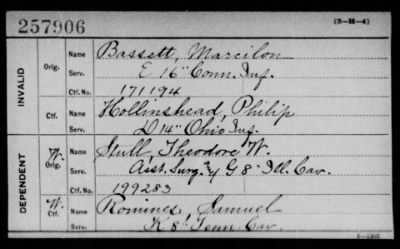 257906
(3-H-4)
INVALID
Orig.
Name Bassett, Marcilon
Serv. E 16" Conn. Inf.
Ctf. No. 171194
Ctf.
Name Hollinshead, Philip
Serv. D 14" Ohio Inf.
DEPENDENT
W. Orig.
Name Stull, Theodore W.
Serv. Asst. Surg. & G 8" Ill. Cav.
Ctf. No. 199283
W. Ctf.
Name Romines, Samuel
Serv. K 8" Tenn. Cav.